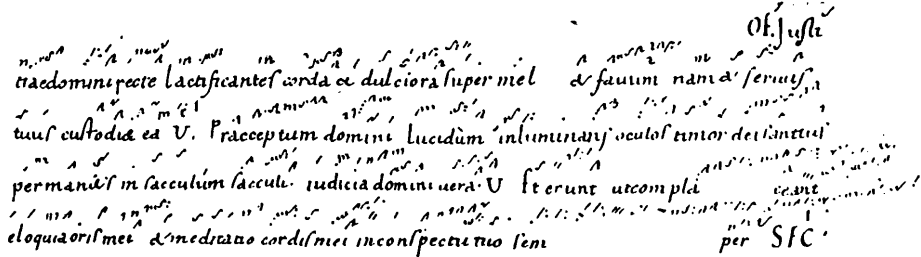 Of. Iusti
tiae domini recte laetificantes corda & dulciora super mel & fauum nam & seruus
tuus custodi& ea V. Praeceptum domini lucidum inluminans oculos timor dei sanctus
permanens in saeculum saeculi. iudicia domini uera. V Et erunt ut compla ceant
eloquia oris mei & meditatio cordis mei in conspectu tuo sem per